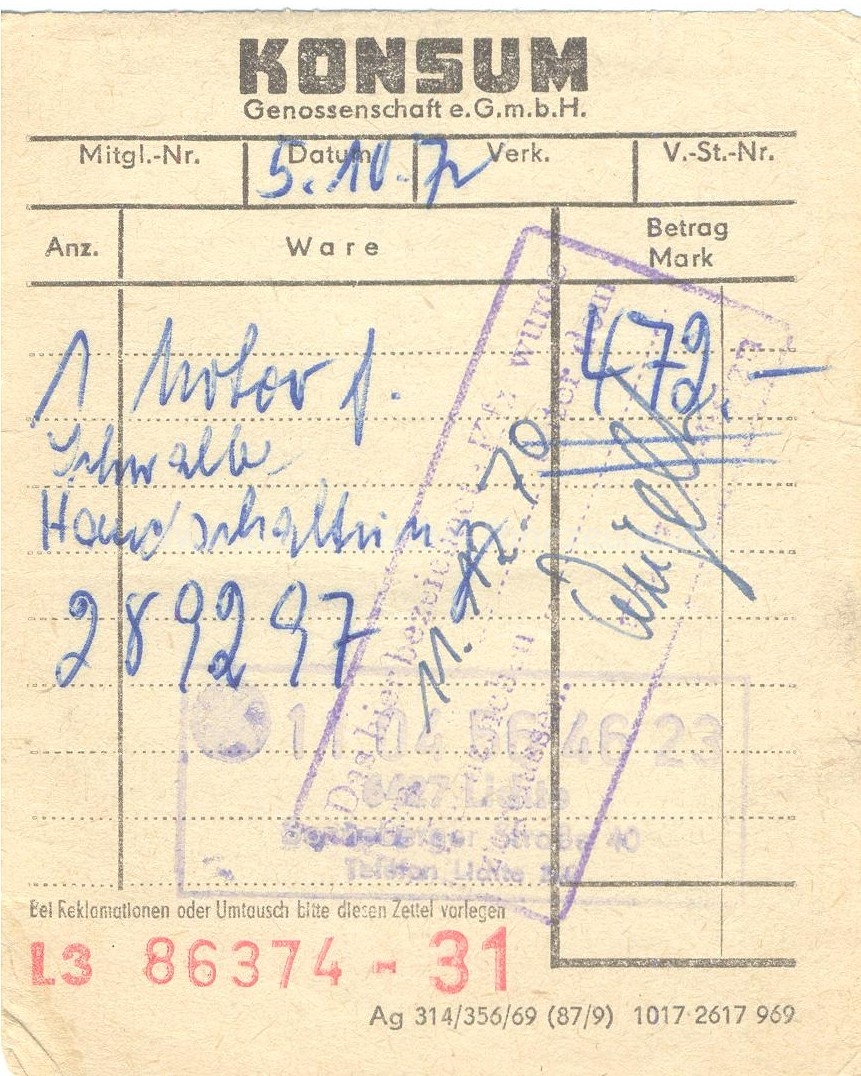 KONSUM
Genossenschaft e.G.m.b.H.
Mitgl.-Nr. Datum Verk. V.-St.-Nr.
5.10.72
Anz. Ware Betrag Mark
1 Motor f. 472.—
Schwalbe
Handschaltung
289297
Das hier bezeichnete wurde
11. 12. 70
11 04 56 46 23
6427 Lichte
Straße 40
Telefon Lichte
Bei Reklamationen oder Umtausch bitte diesen Zettel vorlegen
L3 86374 - 31
Ag 314/356/69 (87/9) 1017 2617 969